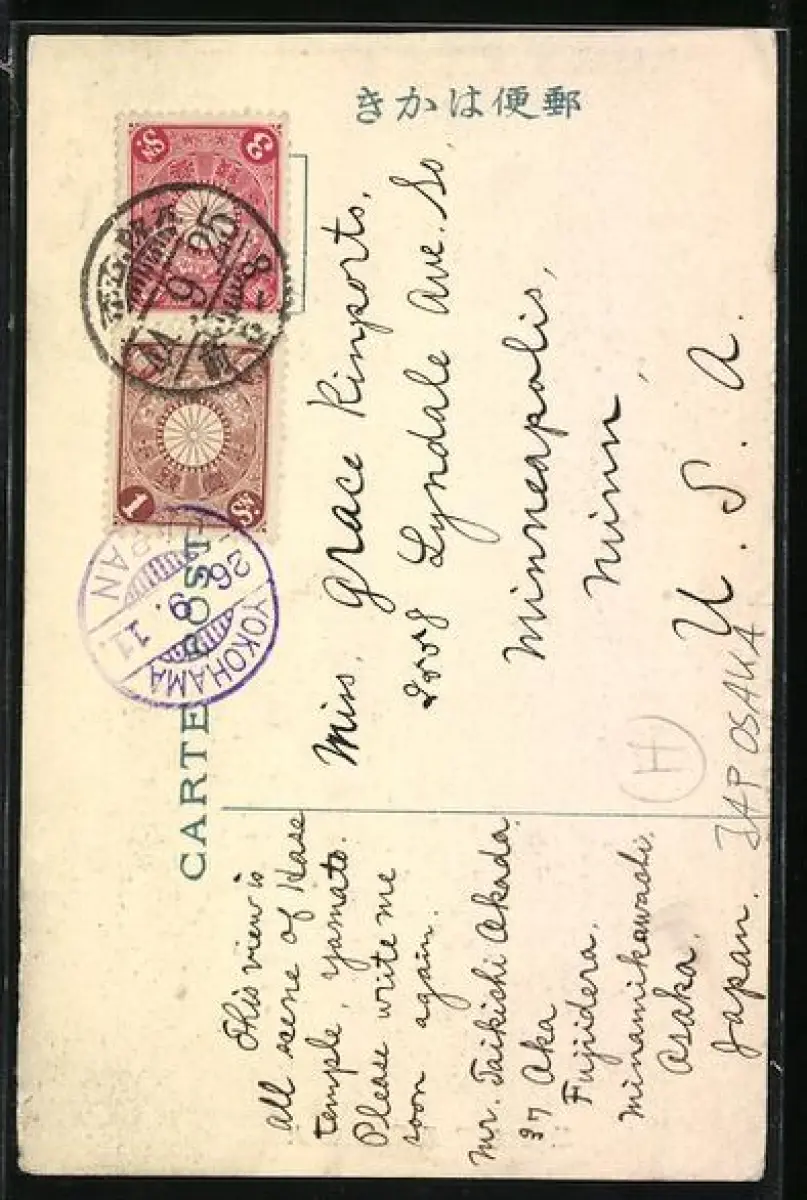 郵便はかき
CARTE POST
3 SN.
1 SN.
44. 9. 25
YOKOHAMA
26. 9. 11
JAPAN
Miss. Grace Kinports,
2008 Lyndale Ave. So,
Minneapolis,
Minn,
U. S. A.
This view is
all scene of Hase
temple, Yamato.
Please write me
soon again.
Mr. Taikichi Okada.
37 Oka
Fujiidera,
Minamikawachi.
Osaka.
Japan.
JAP OSAKA
H